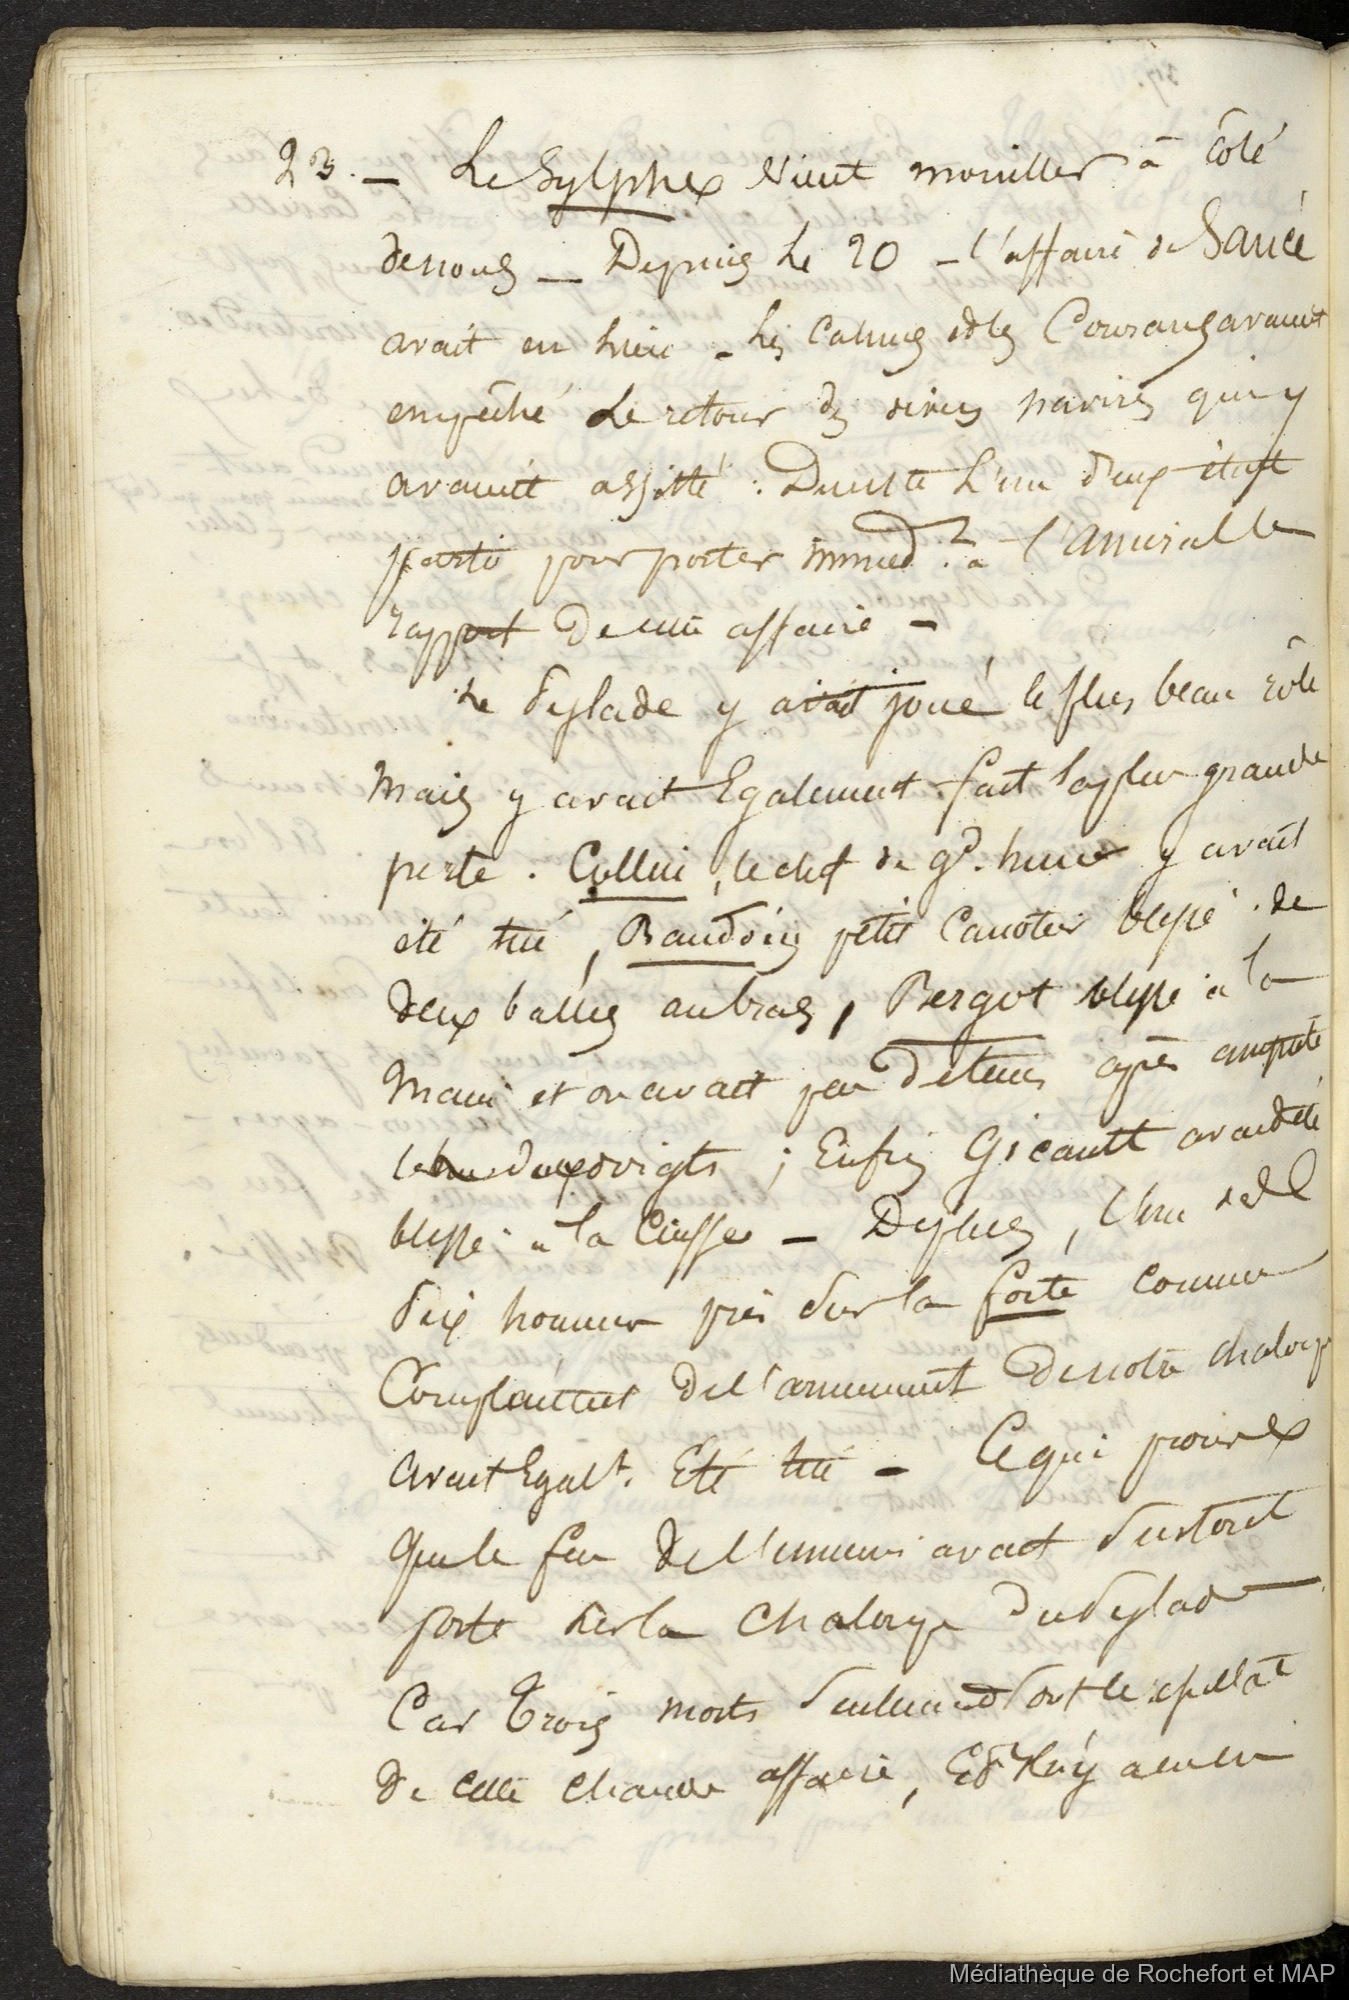 23. — Le Sylphe vient mouiller à côté
de nous — Depuis le 20 — l'affaire de Saucé
avait eu lieu — les calmes et les Courans avaient
empêché le retour des divers navires qui y
avaient assisté : Ducste L'un d'eux était
parti pour porter immed.t à l'amiral le
rapport de cette affaire —
Le Pylade y avait joué le plus beau rôle
Mais y avait Egalement fait la plus grande
perte. Collin, le chef de g.d hune y avait
été tué, Baudoin petit Canotier blessé de
deux balles au bras, Bergot blessé à la
Main et on avait peu de tems après amputé
l'un des doigts ; Enfin Gicault avait été
blessé à la Cuisse — De plus, l'un des
dix hommes pris sur la forte comme
Complément de l'armement de notre chaloupe
avait Egalt. Eté tué — Ce qui prouve
que le feu de l'ennemi avait surtout
porté sur la Chaloupe du Pylade
Car Trois morts seulement sont le résultat
de cette chaude affaire, Et il n'y a eu
Médiathèque de Rochefort et MAP